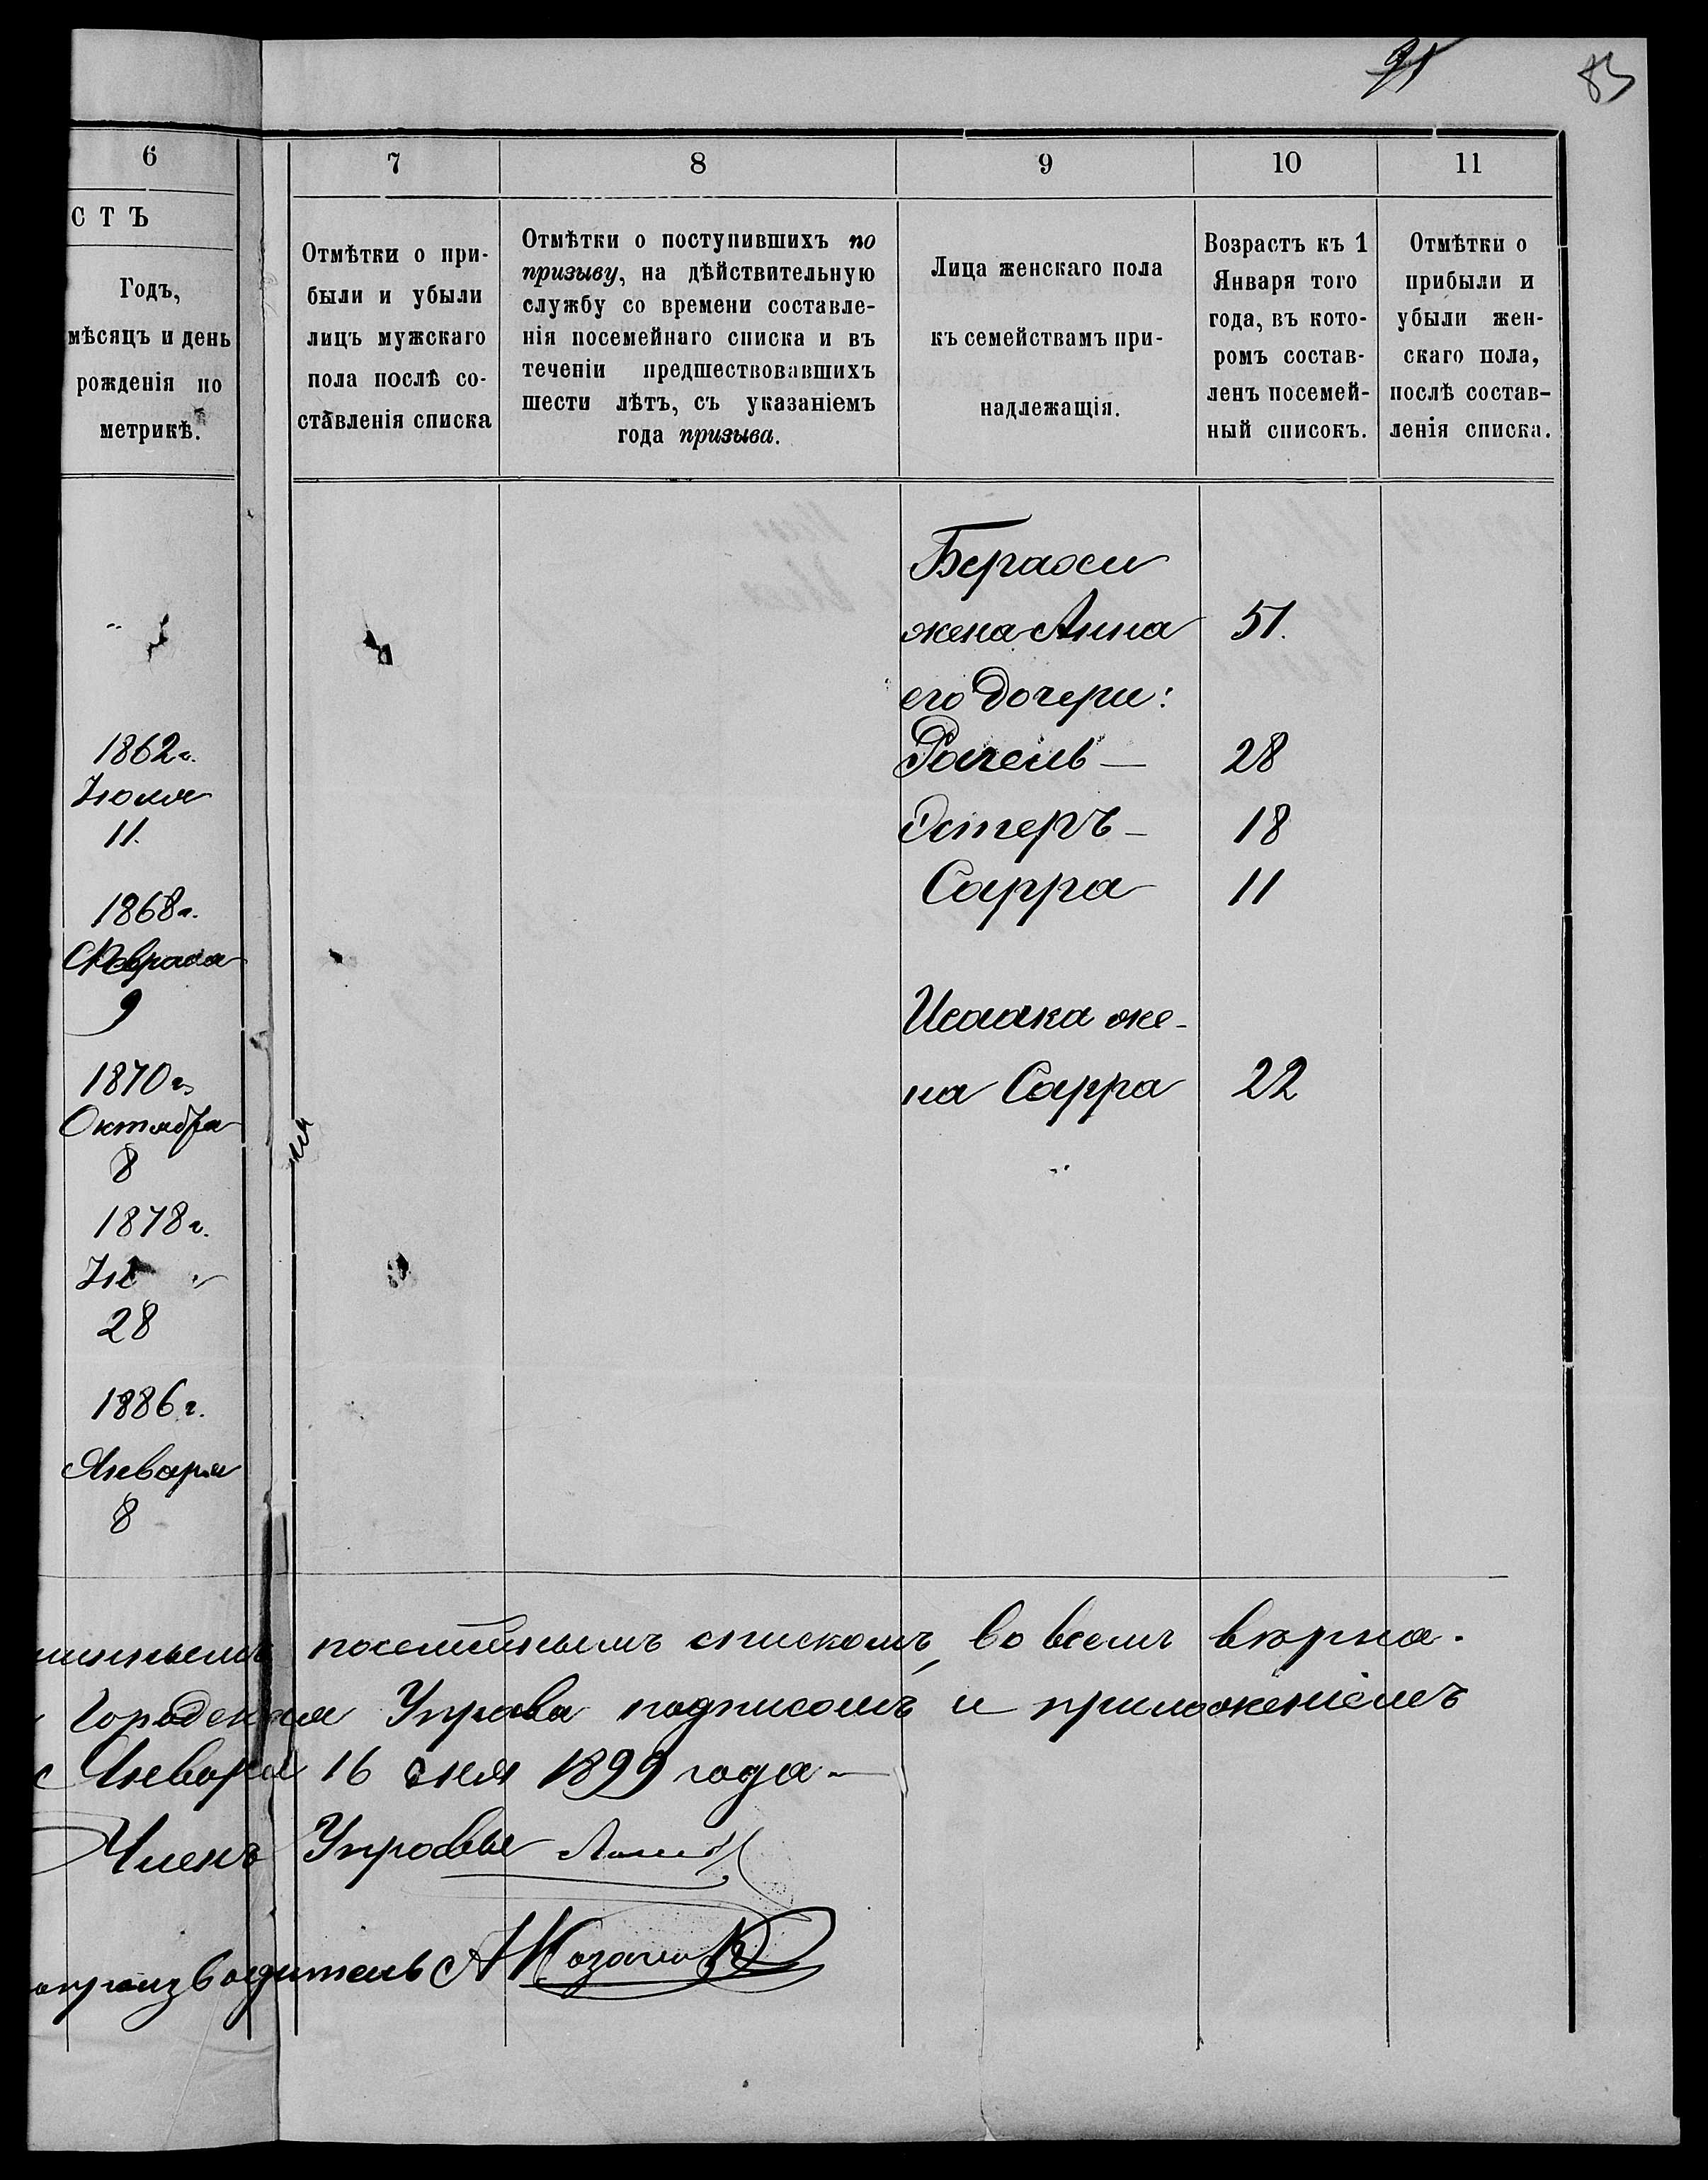 91 83
6 7 8 9 10 11
СТЪ
Годъ,
мѣсяцъ и день
рожденія по
метрикѣ.
Отмѣтки о при-
были и убыли
лицъ мужскаго
пола послѣ со-
ставленія списка
Отмѣтки о поступившихъ по
призыву, на дѣйствительную
службу со времени составле-
нія посемейнаго списка и въ
теченіи предшествовавшихъ
шести лѣтъ, съ указаніемъ
года призыва.
Лица женскаго пола
къ семействамъ при-
надлежащія.
Возрастъ къ 1
Января того
года, въ кото-
ромъ состав-
ленъ посемей-
ный списокъ.
Отмѣтки о
прибыли и
убыли жен-
скаго пола,
послѣ состав-
ленія списка.
1862 г.
Іюля
11.
1868 г.
Февраля
9
1870 г.
Октября
8
1878 г.
28
1886 г.
Января
8
жена Анна 51.
его дочери:
Рахель — 28
Эстеръ — 18
Сарра 11
Исаака же-
на Сарра 22
посемейнымъ спискомъ, во всемъ вѣрна.
Городская Управа подписомъ и приложеніемъ
Января 16 дня 1899 года —
Членъ Управы
опроизводитель